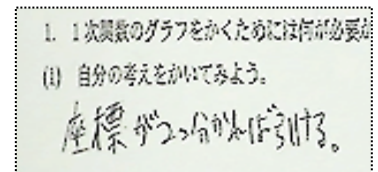 1. 1次関数のグラフをかくためには何が必要か
(1) 自分の考えをかいてみよう。
座標が2つ分かれば引ける。